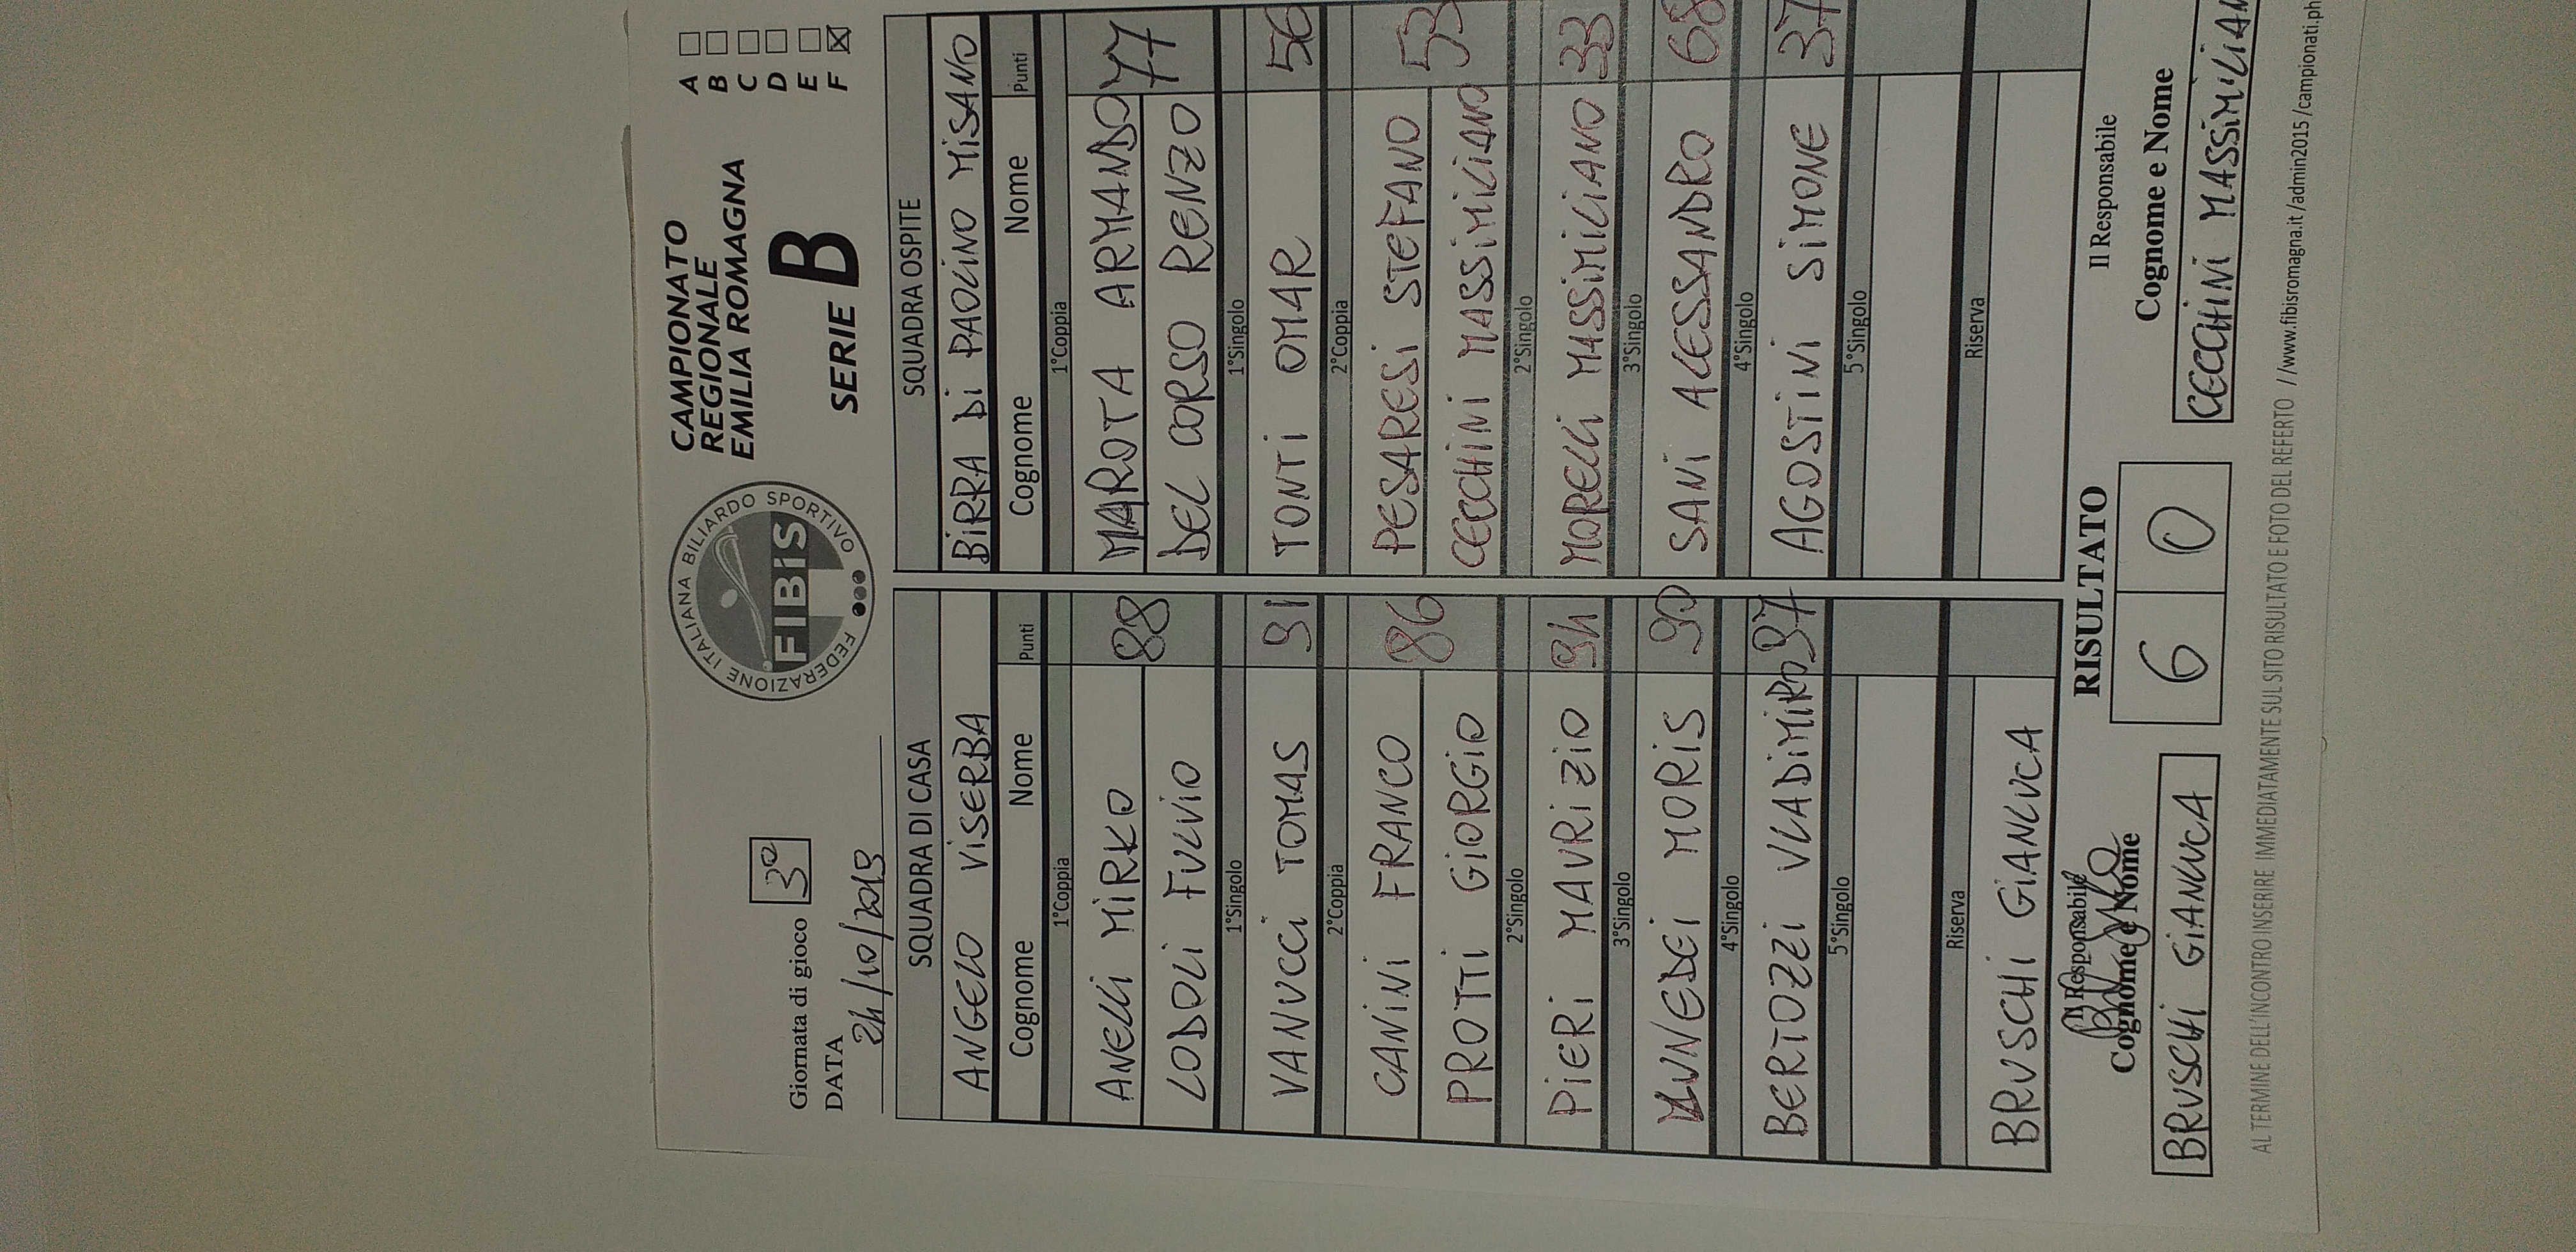 FEDERAZIONE ITALIANA BILIARDO SPORTIVO
FIBiS
CAMPIONATO
REGIONALE
EMILIA ROMAGNA
SERIE B
A
B
C
D
E
F
Giornata di gioco 3°
DATA
24/10/2019
SQUADRA DI CASA
ANGELO VISERBA
Cognome Nome Punti
1°Coppia
ANELLI MIRKO 88
LODOLI FULVIO
1°Singolo
VANUCCI TOMAS 91
2°Coppia
CANINI FRANCO 86
PROTTI GIORGIO
2°Singolo
PIERI MAURIZIO 94
3°Singolo
MUNEDEI MORIS 90
4°Singolo
BERTOZZI VLADIMIRO 97
5°Singolo
Riserva
BRUSCHI GIANLUCA
SQUADRA OSPITE
BIRRA DI PAOLINO MISANO
Cognome Nome Punti
1°Coppia
MAROTA ARMANDO 77
DEL CORSO RENZO
1°Singolo
TONTI OMAR 56
2°Coppia
PESARESI STEFANO 53
CECCHINI MASSIMILIANO
2°Singolo
MORELLI MASSIMILIANO 33
3°Singolo
SANI ALESSANDRO 68
4°Singolo
AGOSTINI SIMONE 37
5°Singolo
Riserva
Il Responsabile
Cognome e Nome
BRUSCHI GIANLUCA
RISULTATO
6 0
Il Responsabile
Cognome e Nome
CECCHINI MASSIMILIAN
AL TERMINE DELL'INCONTRO INSERIRE IMMEDIATAMENTE SUL SITO RISULTATO E FOTO DEL REFERTO //www.fibisromagna.it /admin2015 /campionati.ph